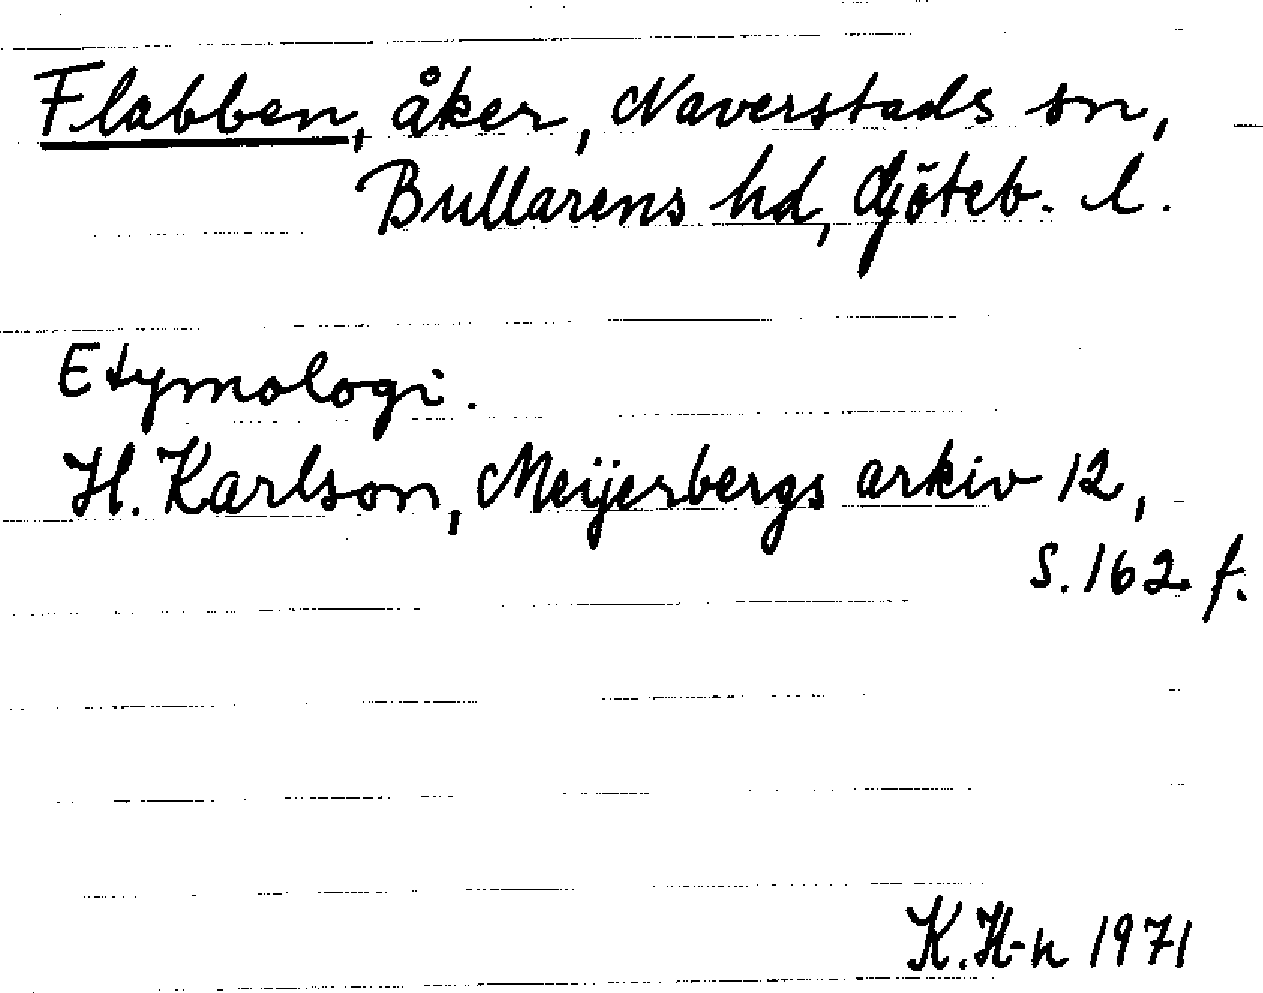 Flabben, åker, Naverstads sn,
Bullarens hd, Göteb. l.
Etymologi.
H. Karlson, Meijerbergs arkiv 12,
s. 162 f.
K.H-n 1971